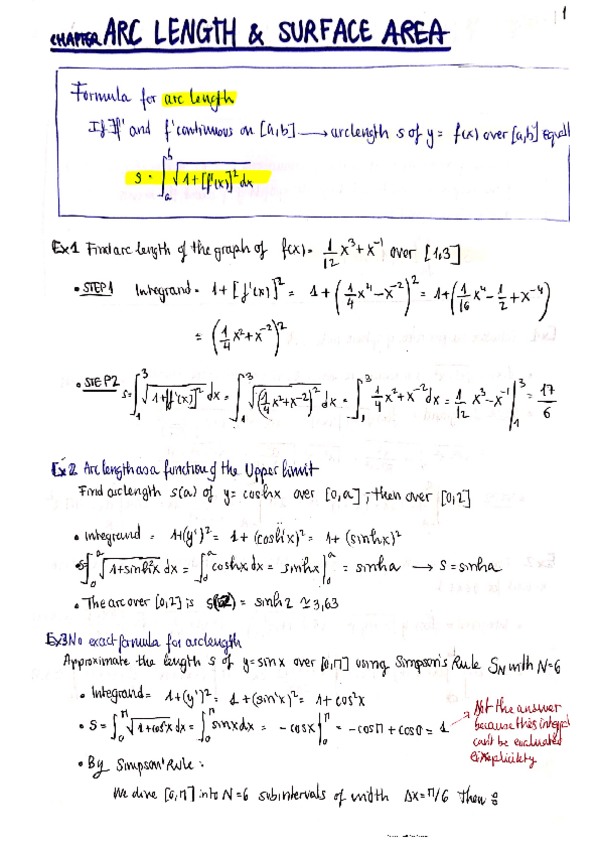 1
CHAPTER ARC LENGTH & SURFACE AREA
Formula for arc length
If ∃f' and f' continuous on [a,b] → arclength s of y = f(x) over [a,b] equal
s = ∫_a^b √(1+[f'(x)]²) dx
Ex1 Find arc length of the graph of f(x) = 1/12 x³ + x⁻¹ over [1,3]
• STEP1 Integrand = 1 + [f'(x)]² = 1 + (1/4 x⁴ - x⁻²)² = 1 + (1/16 x⁴ - 1/2 + x⁻⁴)
= (1/4 x² + x⁻²)²
• STEP2 s = ∫_1^3 √(1+[f'(x)]²) dx = ∫_1^3 √((1/4 x² + x⁻²)²) dx = ∫_1^3 1/4 x² + x⁻² dx = 1/12 x³ - x⁻¹ |_1^3 = 17/6
Ex2 Arc length as a function of the Upper limit
Find arclength s(a) of y = coshx over [0,a] ; then over [0,2]
• Integrand = 1+(y')² = 1 + (cosh'x)² = 1 + (sinhx)²
s = ∫_0^a √(1+sinh²x) dx = ∫_0^a coshx dx = sinhx |_0^a = sinha → s = sinha
• The arc over [0,2] is s(2) = sinh2 ≃ 3,63
Ex3 No exact formula for arclength
Approximate the length s of y = sinx over [0,π] using Simpson's Rule S_N with N=6
• Integrand = 1+(y')² = 1 + (sin'x)² = 1 + cos²x
• S = ∫_0^π √(1+cos²x) dx = ∫_0^π sinxdx = -cosx |_0^π = -cosπ + cos0 = 1
Not the answer
because this integral
can't be evaluated
explicitely
• By Simpson' Rule :
We divine [0,π] into N=6 subintervals of width Δx = π/6 Then :